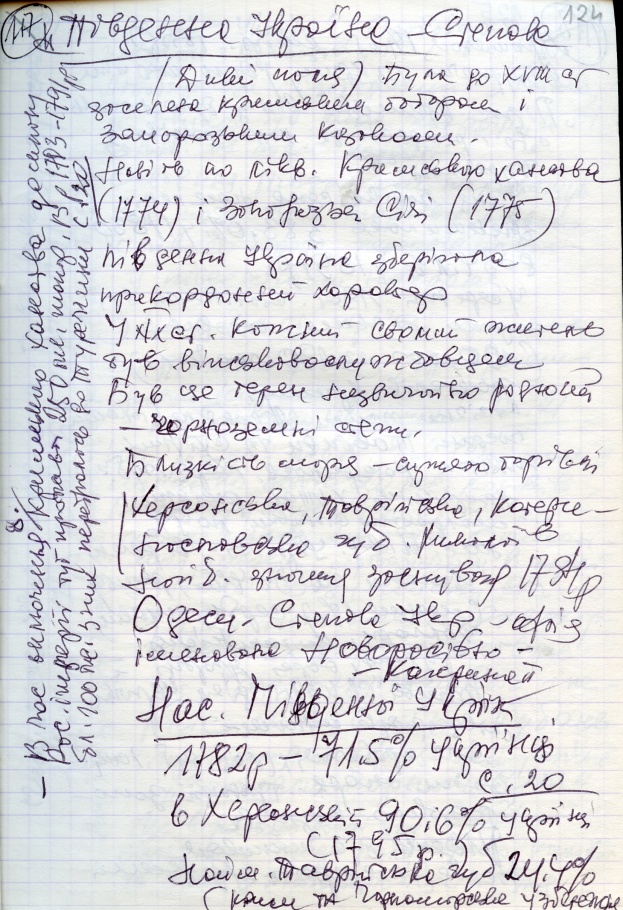 117 Південна Україна – Степова
124
(Дикі поля) Була до XVIII ст
заселена кримськими татарами і
запорозькими козаками.
Навіть по лікв. Кримського ханства
(1774) і Запорозької Січі (1775)
Південна Україна зберігала
прикордонний характер
У XIX ст. кожний
був військовослужбовцем
Був це терен надзвичайно родючий
– чорноземні степи.
Близкість моря – сприяло торгівлі
Херсонська, Таврійська, Катери-
нославська губ.
найб. значення заснування 179 р
Одеси. Степова Укр –
іменована Новоросією –
– Катериной
Нас. Південної України
1782р – 71.5% українці
с. 20
в Херсонській 90.6% українці
(1795р.)
Найм. Таврійська губ 24.4%
(Крим та Чорноморське узбережжя
– В час включення Кримського ханства до складу
Рос. імперії тут проживало 250 тис. татар, в р 1783-1791 рр
бл. 100 тис. з них перебралось до Туреччини с 120